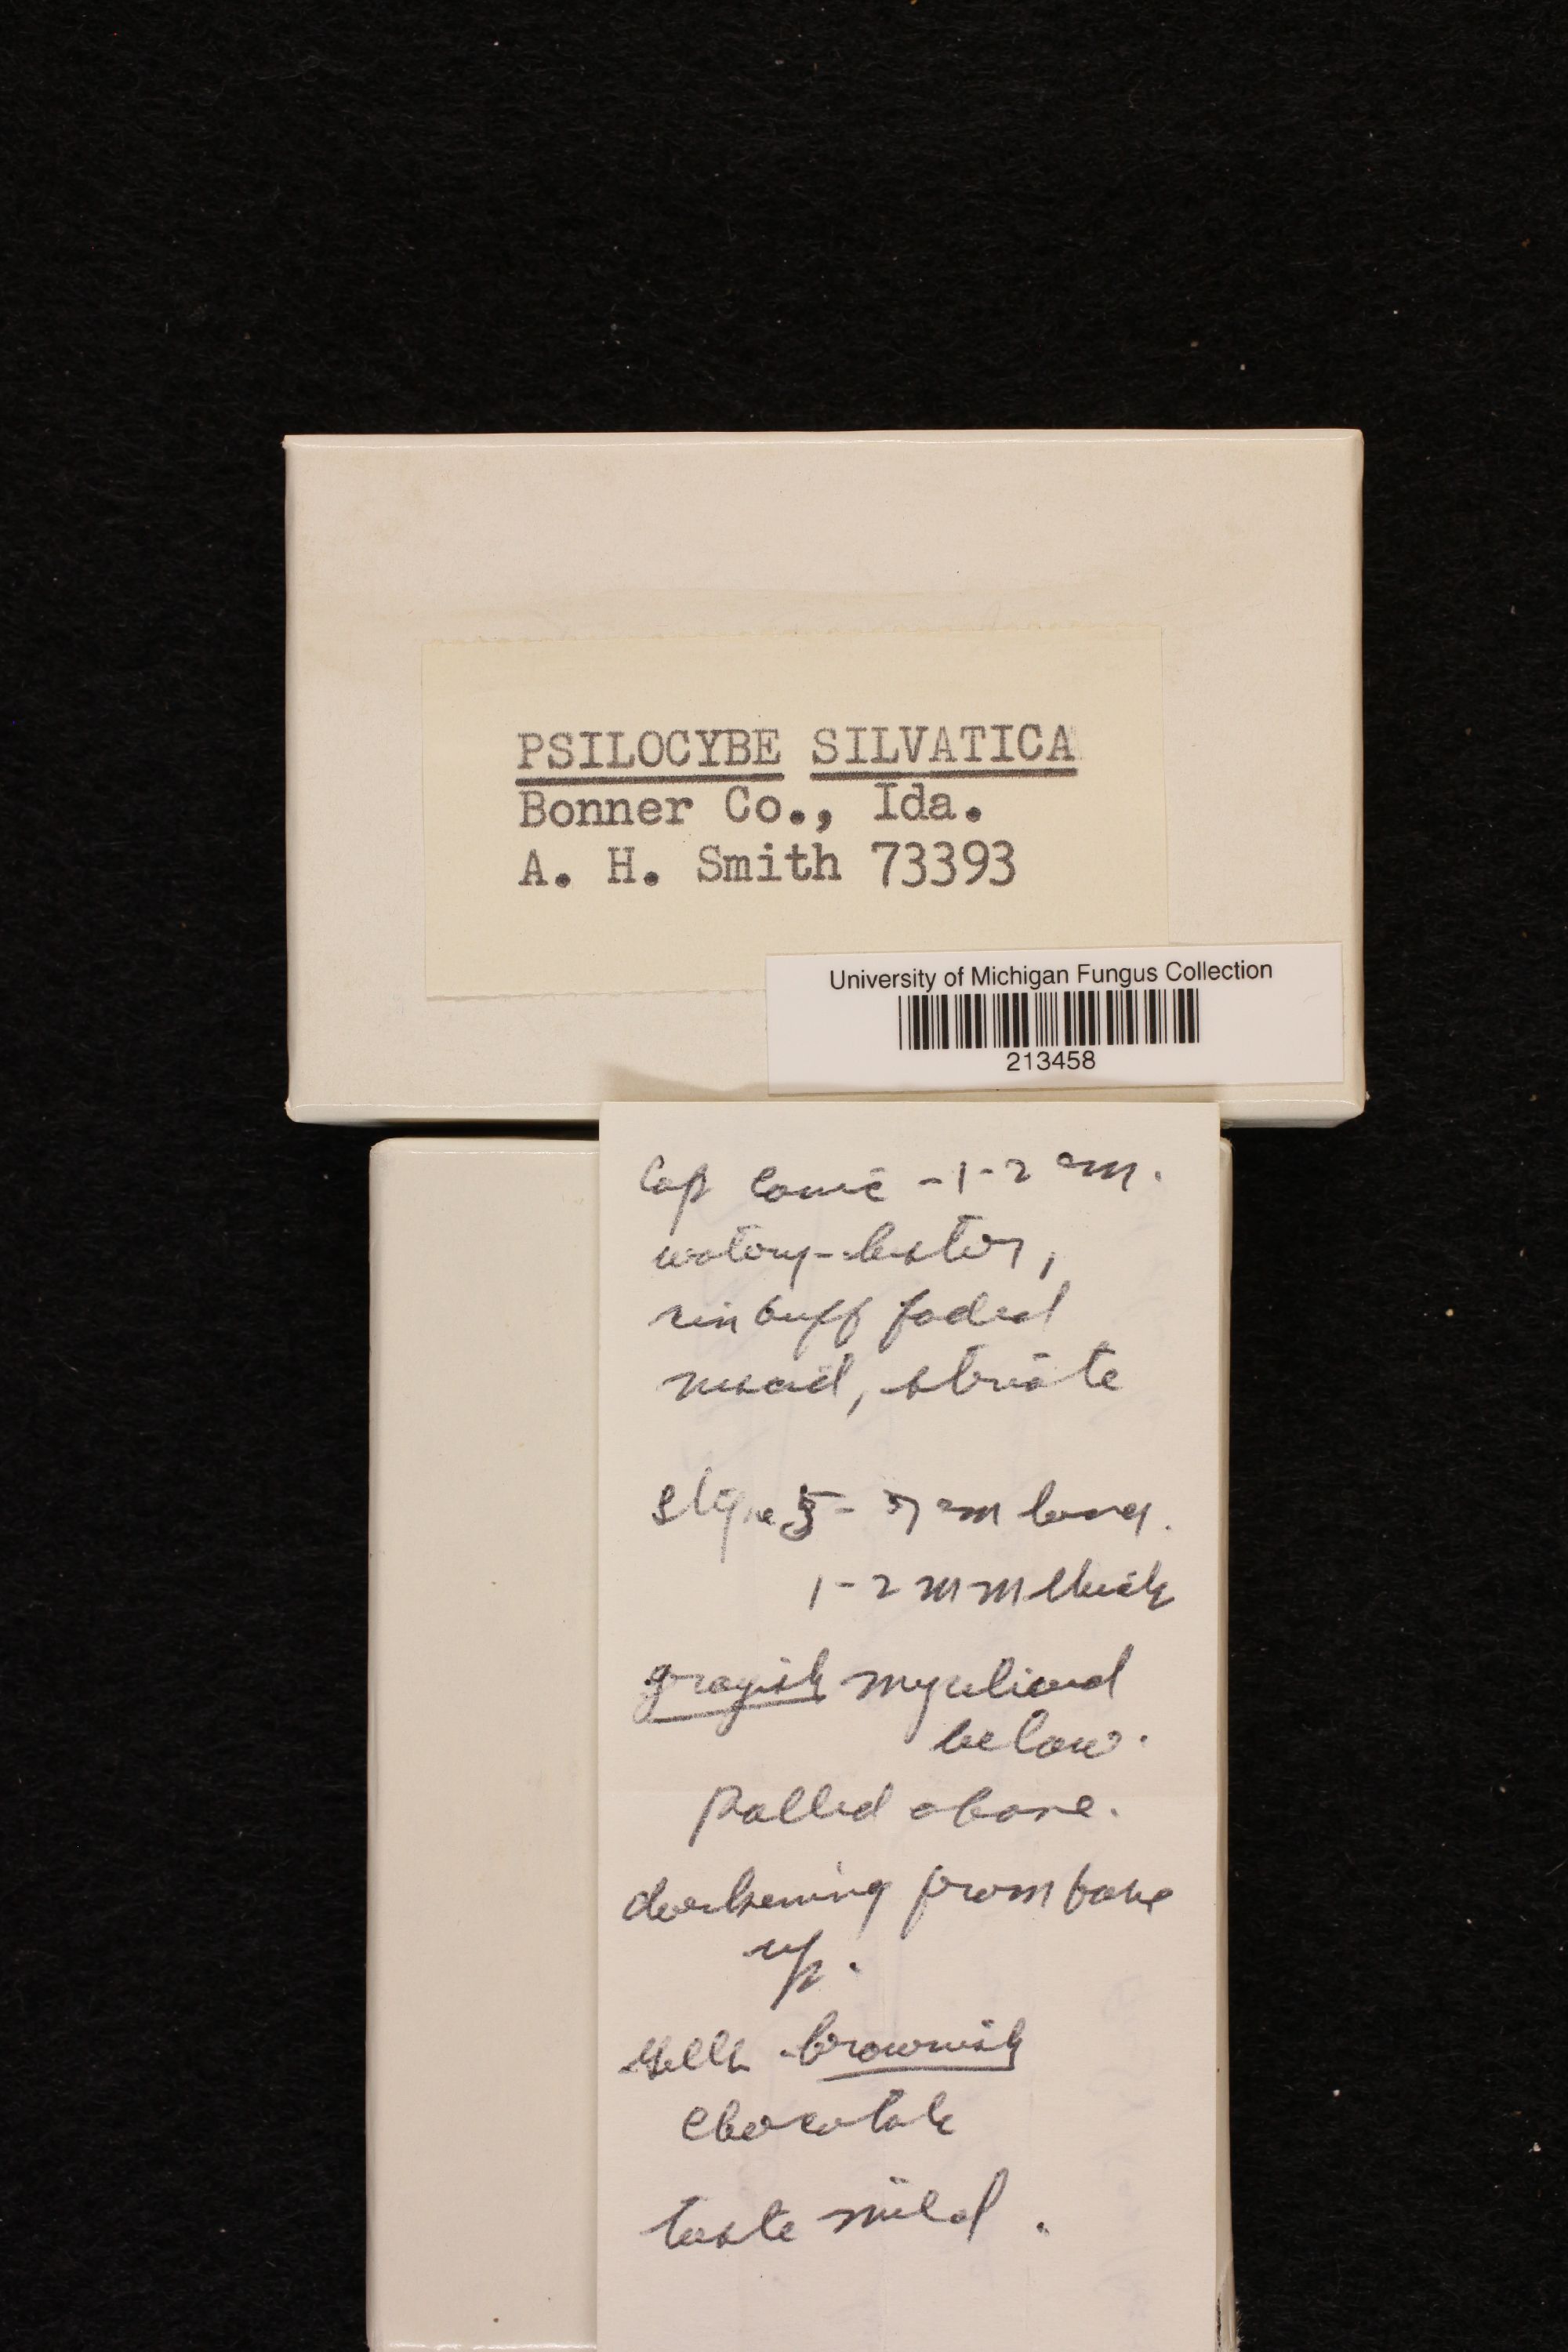 PSILOCYBE SILVATICA
Bonner Co., Ida.
A. H. Smith 73393
University of Michigan Fungus Collection
213458
Cap conic - 1-2 cm.
watery-bister,
buff faded
viscid, striate
Stipe 5- 7 cm long.
1-2 mm thick
grayish mycelioid
below.
Pallid above.
darkening from base
up.
Gills brownish
chocolate
taste mild.